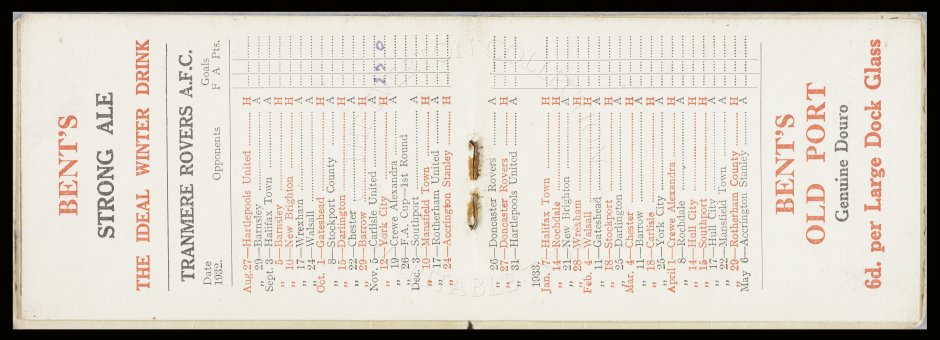 BENT'S
STRONG ALE
THE IDEAL WINTER DRINK
TRANMERE ROVERS A.F.C.
Date 1932. Opponents Goals F A Pts.
Aug. 27—Hartlepools United H
„ 29—Barnsley A
Sept. 3—Halifax Town A
„ 5—Barnsley H
„ 10—New Brighton H
„ 17—Wrexham A
„ 24—Walsall A
Oct. 1—Gateshead H
„ 8—Stockport County A
„ 15—Darlington H
„ 22—Chester A
„ 29—Barrow H
Nov. 5—Carlisle United A 1 5 0
„ 12—York City H
„ 19—Crewe Alexandra A
„ 26—F.A. Cup—1st Round
Dec. 3—Southport A
„ 10—Mansfield Town H
„ 17—Rotherham United A
„ 24—Accrington Stanley H
„ 26—Doncaster Rovers A
„ 27—Doncaster Rovers H
„ 31—Hartlepools United A
1933.
Jan. 7—Halifax Town H
„ 14—Rochdale H
„ 21—New Brighton A
„ 28—Wrexham H
Feb. 4—Walsall H
„ 11—Gateshead A
„ 18—Stockport H
„ 25—Darlington A
Mar. 4—Chester H
„ 11—Barrow A
„ 18—Carlisle H
„ 25—York City A
April 1—Crewe Alexandra H
„ 8—Rochdale A
„ 14—Hull City H
„ 15—Southport H
„ 17—Hull City A
„ 22—Mansfield Town A
„ 29—Rotherham County H
May 6—Accrington Stanley A
BENT'S
OLD PORT
Genuine Douro
6d. per Large Dock Glass